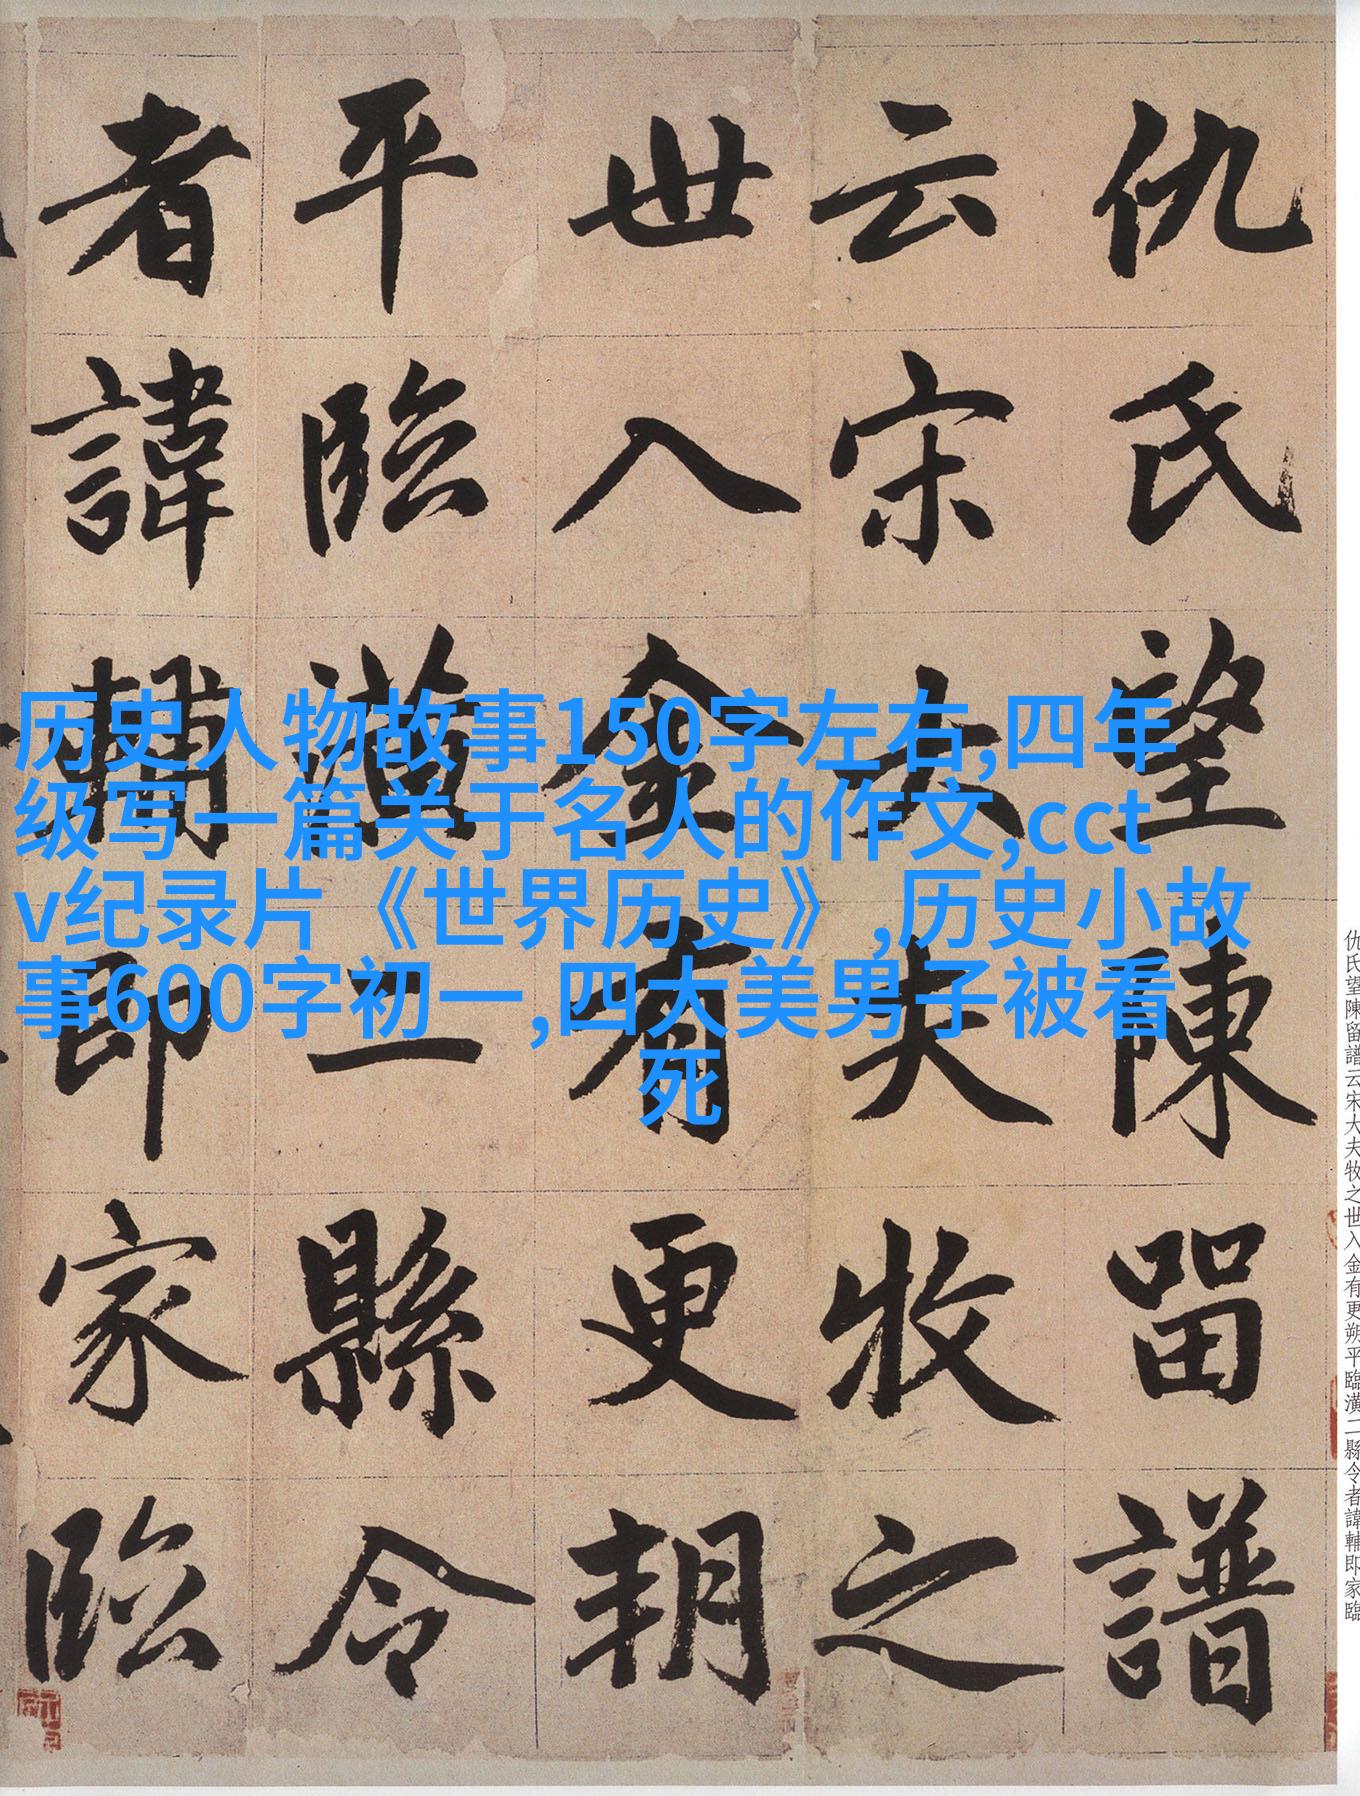 仇氏望陳留譜
云宋大夫牧之
世入金有更朔
平臨潢二縣令
者諱輔即家臨
历史人物故事150字左右,四年
级写一篇关于名人的作文,cct
v纪录片《世界历史》,历史小故
事600字初一,四大美男子被看
死
仇氏望陳留譜云宋大夫牧之世入金有更朔平臨潢二縣令者諱輔即家臨